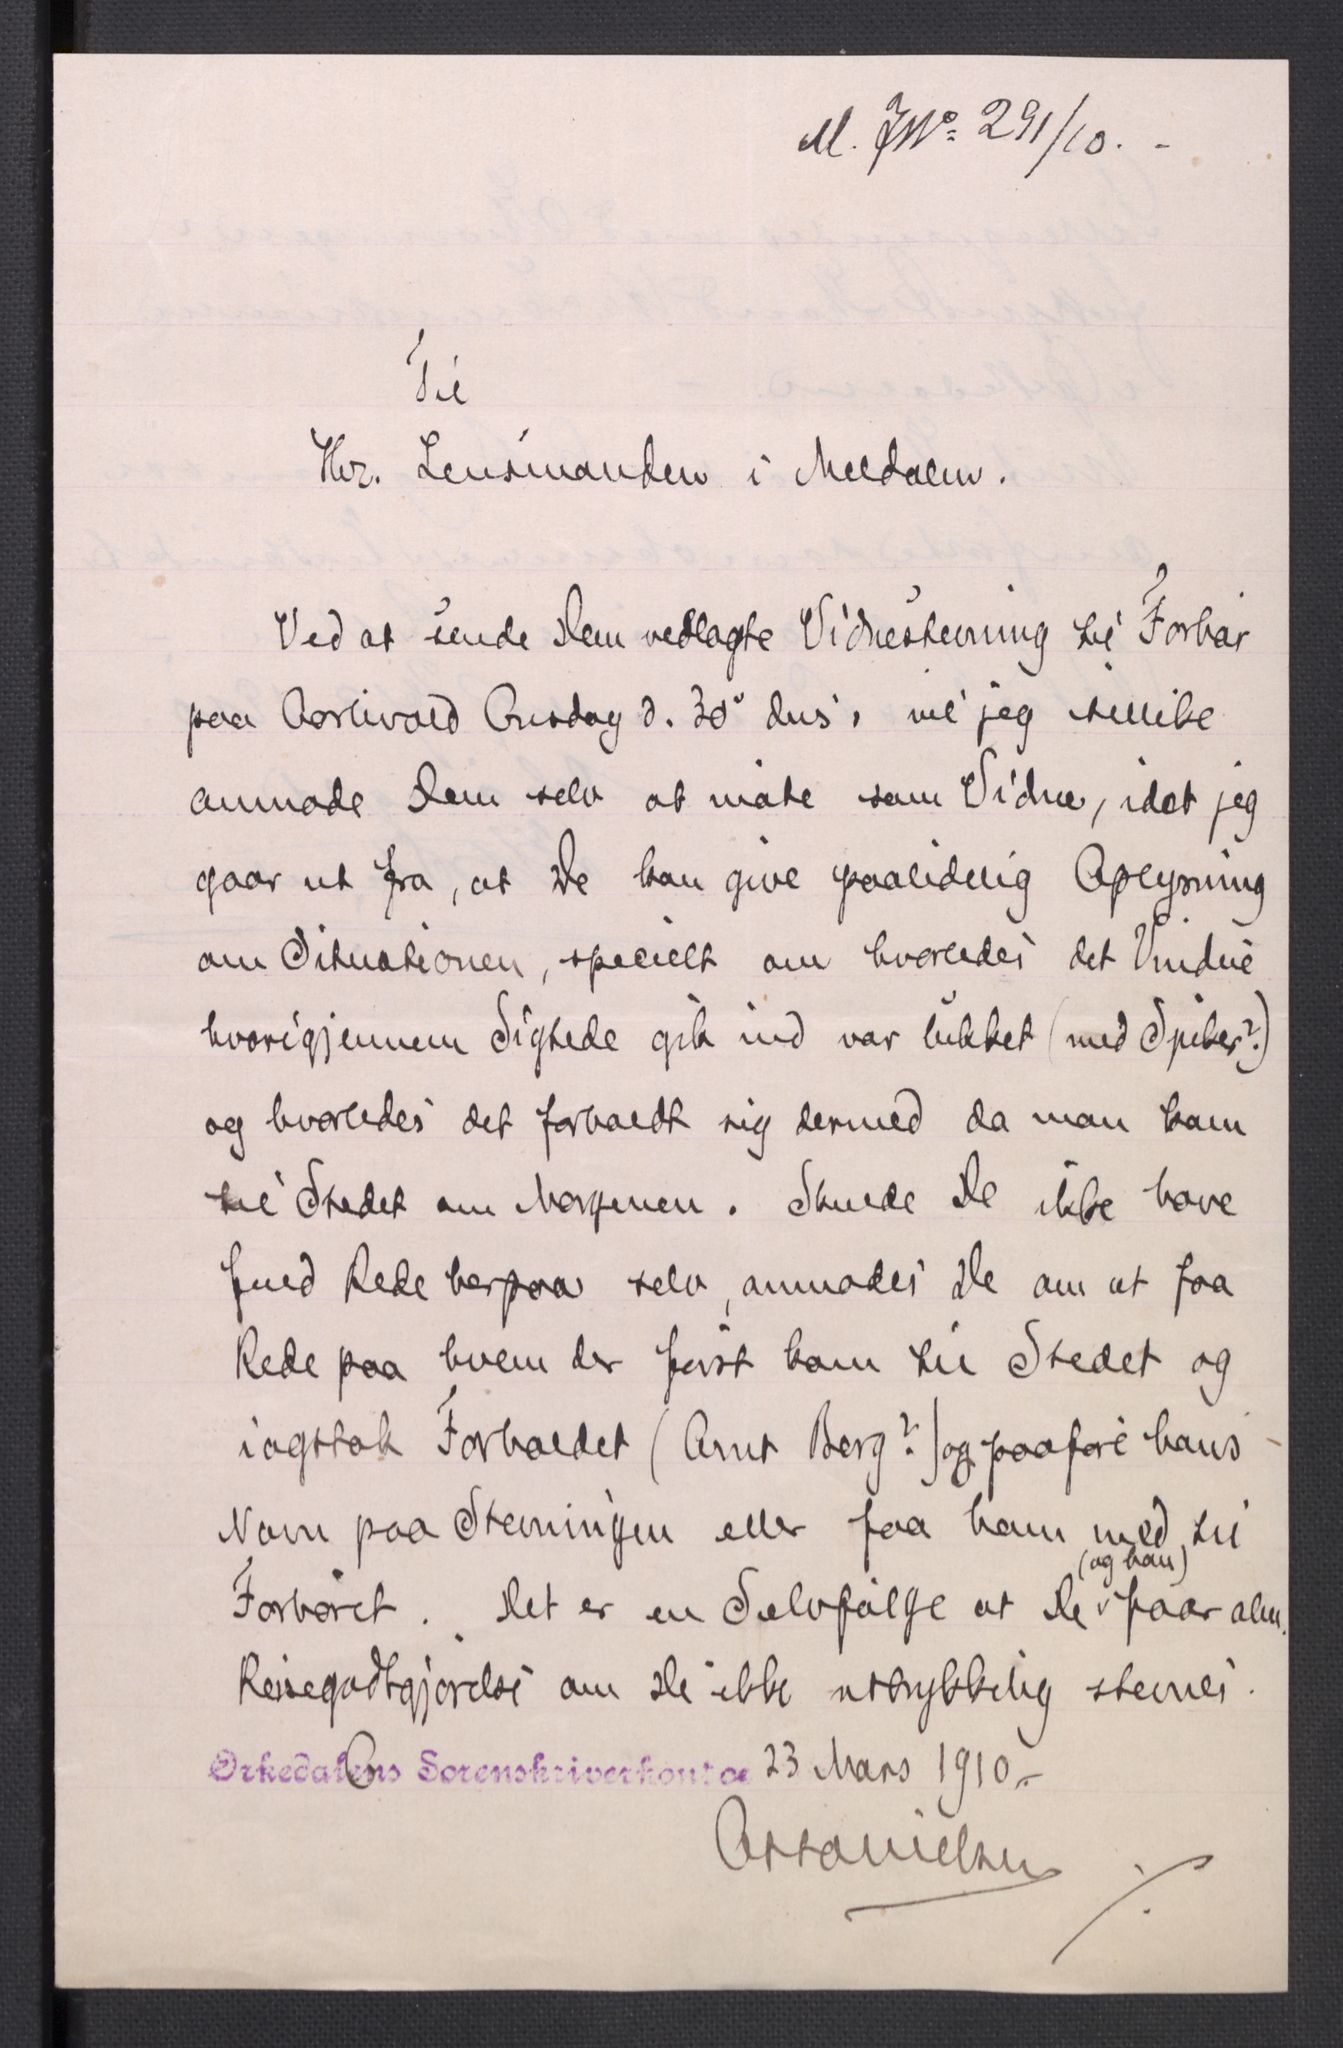 M. J No 291/10. -
Til
Hr. Lensmanden i Meldalen.
Ved at sende Dem vedlagte Vidnestevning til Forhør
paa Aarlivold Onsdag d. 30' dns, vil jeg tillike
anmode Dem selv at møte som Vidne, idet jeg
gaar ut fra, at De kan give paalidelig Oplysning
om Situationen, specielt om hvorledes det Vindue
hvorigjennem Sigtede gik ind var lukket (med Spiker?)
og hvorledes det forholdt sig dermed da man kom
til Stedet om Morgenen. Skulde De ikke have
fuld Rede herpaa selv, anmodes De om at faa
Rede paa hvem der først kom til Stedet og
iagttok Forholdet (Arnt Berg?) og paaføre hans
Navn paa Stevningen eller faa ham med til
(og han)
Forhøret. Det er en Selvfølge at De faar alm.
Reisegodtgjørelse om De ikke uttrykkelig stevnes.
Orkedalens Sorenskriverkontor 23 Mars 1910.-
Otto Nielsen